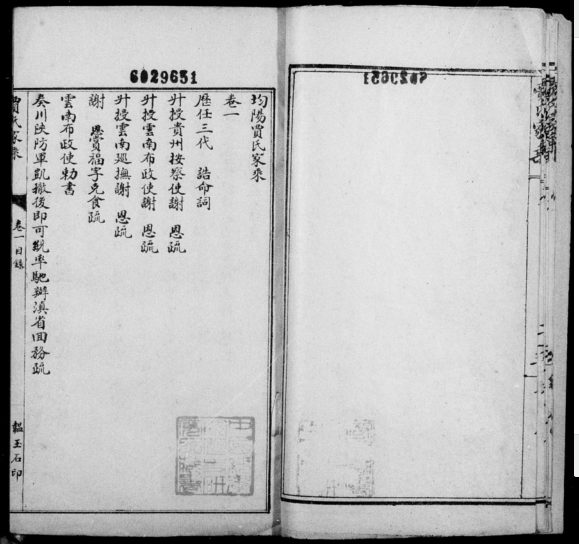 6029651
均陽賈氏家乘
卷一
歷任三代 誥命詞
升授貴州按察使謝 恩疏
升授雲南布政使謝 恩疏
升授雲南巡撫謝 恩疏
謝 恩賞福字克食疏
雲南布政使勅書
奏川陝防軍凱撤後即可親率馳辦滇省回務疏
賈氏家乘
卷一目錄
韞玉石印